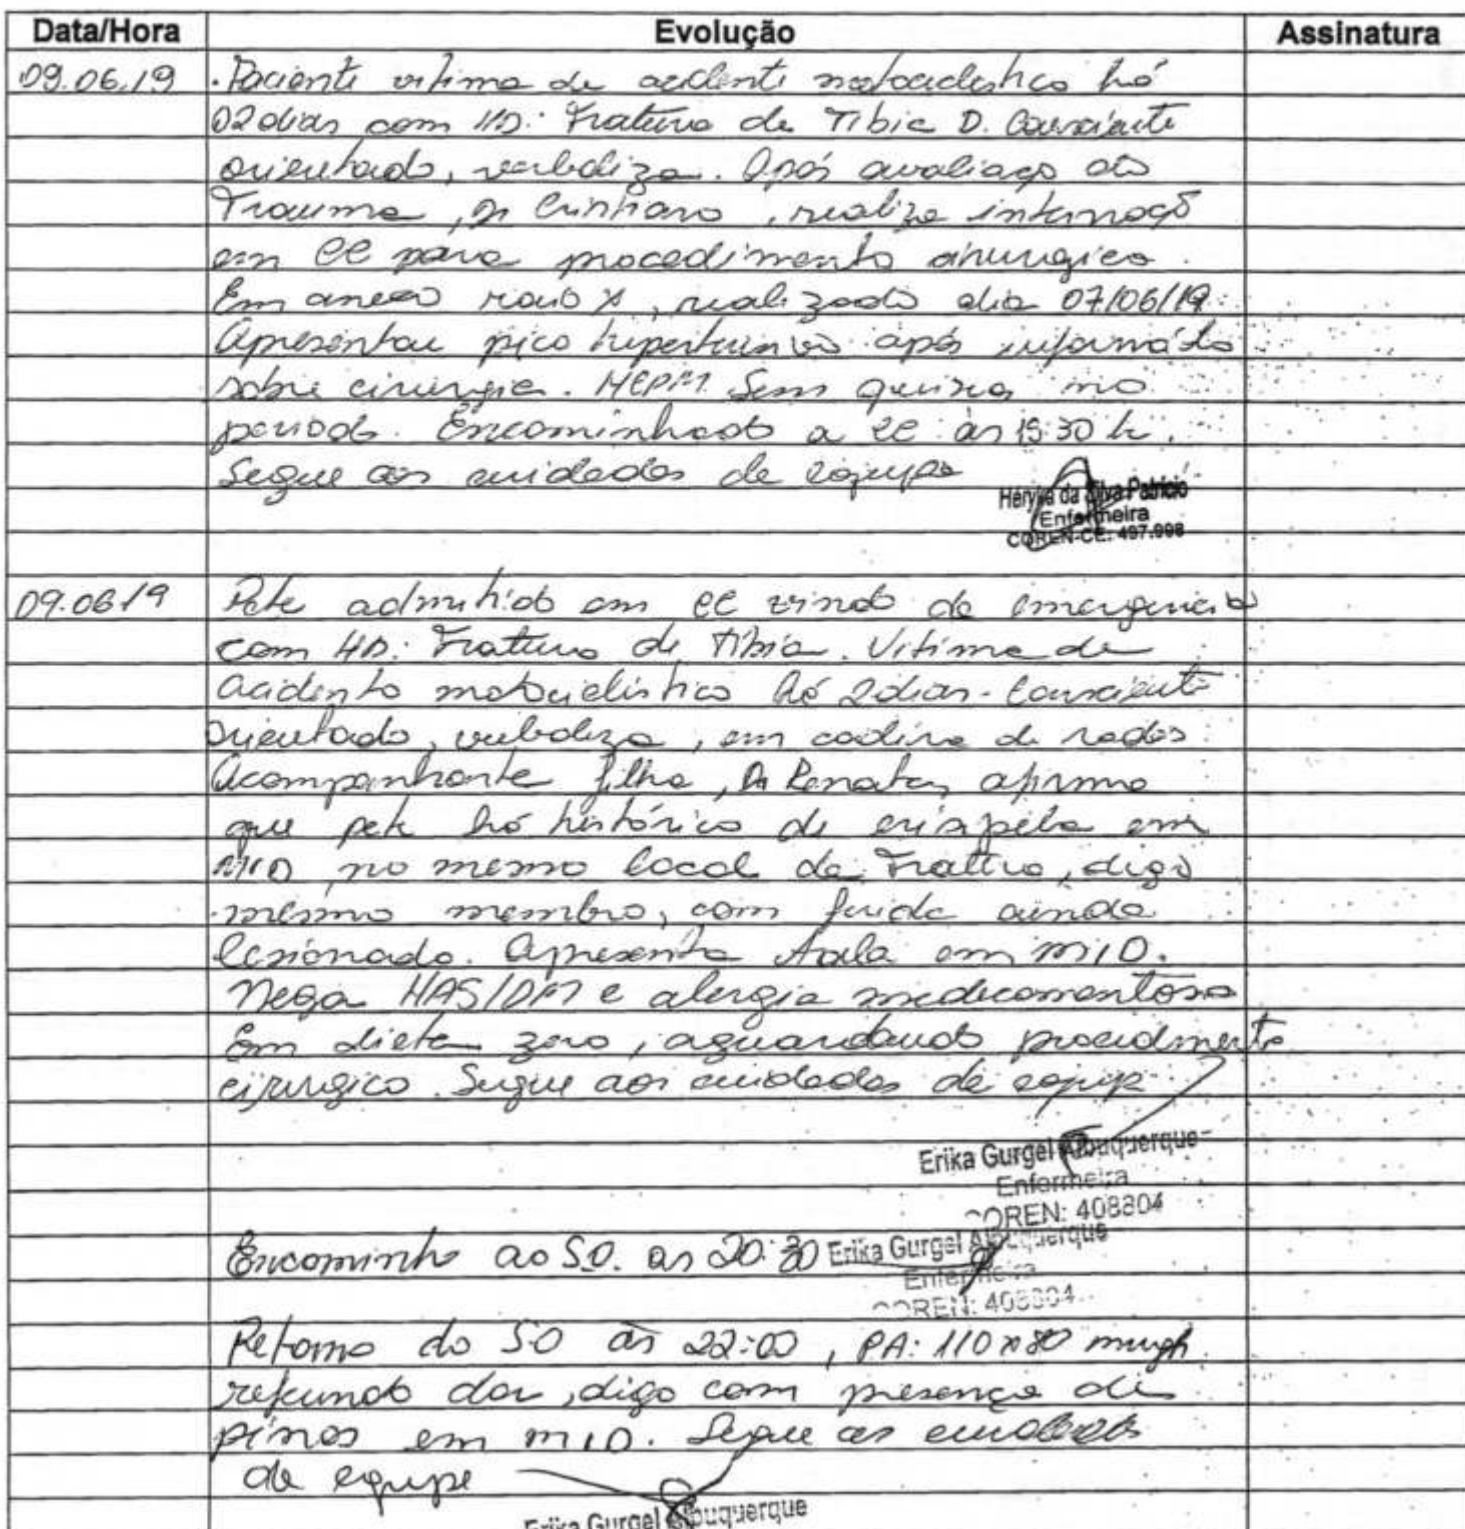 Data/Hora Evolução Assinatura
09.06.19 . Paciente vitima de acidente motociclistico há
02 dias com HD: Fratura de Tibia D. Consciente
orientado, verbaliza. Após avaliação do
Trauma, Dr Cristiano, realizo internação
em CC para procedimento cirurgico.
Em anexo raio x, realizado dia 07/06/19.
Apresentou pico hipertensivo após informado
sobre cirurgia. MCPM. Sem queixas no
periodo. Encaminhado a CC às 15:30 h.
Segue aos cuidados de equipe
Henyka da Silva Patricio
Enfermeira
COREN-CE: 497.998
09.06.19 Pcte admitido em CC vindo de emergencia
com HD: Fratura de tibia. Vitima de
acidente motociclistico há 2 dias. Consciente
orientado, verbaliza, em cadeira de rodas.
Acompanhante filha, Da Renata, afirma
que pcte há histórico de erisipela em
MID no mesmo local da Fratura, digo
mesmo membro, com ferida ainda
lesionado. Apresenta tala em MID.
Nega HAS/DM e alergia medicamentosa
Em dieta zero, aguardando procedimento
cirurgico. Segue aos cuidados de equipe
Erika Gurgel Albuquerque
Enfermeira
COREN: 408804
Encaminho ao S.O. às 20:30 Erika Gurgel Albuquerque
Enfermeira
COREN: 408804
Retorno do SO às 22:00, PA: 110x80 mmgh
referindo dor, digo com presença de
pinos em MID. Segue aos cuidados
da equipe
Erika Gurgel Albuquerque